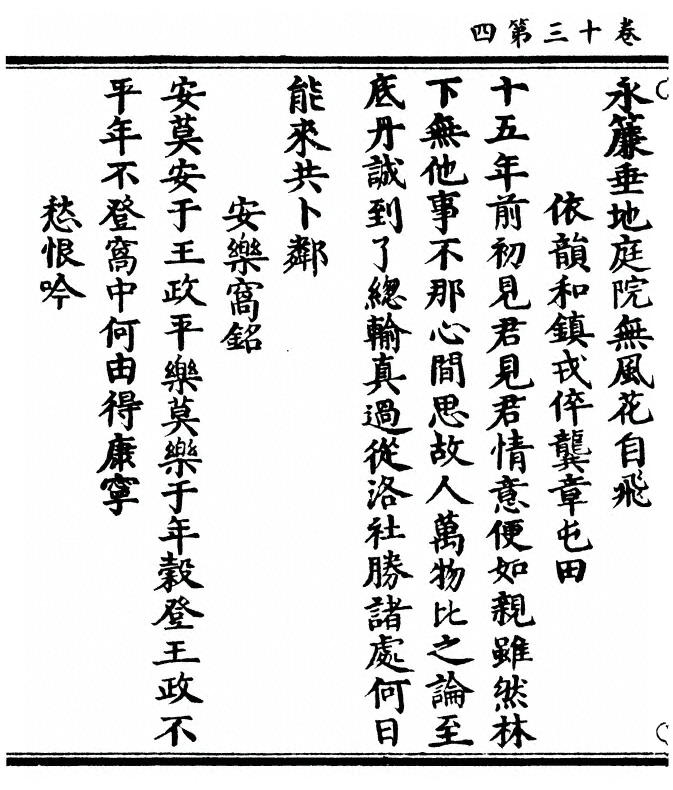 卷十三第四
永簾垂地庭院無風花自飛
依韻和鎮戎倅龔章屯田
十五年前初見君見君情意便如親雖然林
下無他事不那心間思故人萬物比之論至
底丹誠到了緫輸真過從洛社勝諸處何日
能來共卜鄰
安樂窩銘
安莫安于王政平樂莫樂于年穀登王政不
平年不登窩中何由得康寧
愁恨吟